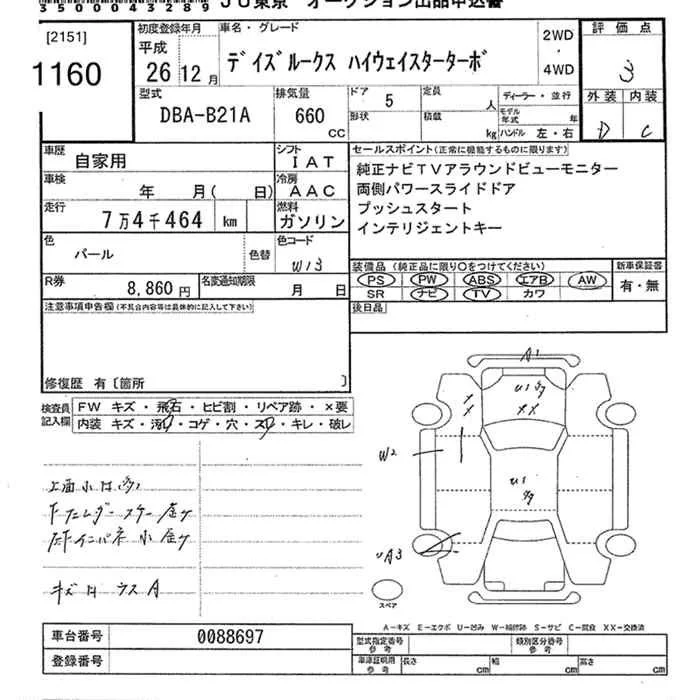 [2151]
1160
初度登録年月
平成
26 12月
車名・グレード
デイズルークス ハイウェイスターターボ
2WD
・
4WD
評価点
3
外装 内装
D C
型式
DBA-B21A
排気量
660
cc
ドア
5
形状
定員
人
積載
kg
ディーラー・並行
モデル年式
年
ハンドル 左・右
車歴
自家用
シフト
IAT
車検
年 月( 日)
冷房
AAC
走行
7万4千464 km
燃料
ガソリン
色
パール
色替
色コード
W13
R券
8,860円
名変通知期限
月 日
セールスポイント(正常に機能するものに限ります)
純正ナビTVアラウンドビューモニター
両側パワースライドドア
プッシュスタート
インテリジェントキー
装備品(純正品に限り○をつけてください)
PS PW ABS エアB AW
SR ナビ TV カワ
新車保証書
有・無
後日品
注意事項申告欄(不具合内容等は具体的に記入して下さい)
修復歴 有〔箇所 〕
検査員記入欄
FW キズ・飛石・ヒビ割・リペア跡・×要
内装 キズ・汚れ・コゲ・穴・スレ・キレ・破レ
キズ ウスA
A1
U1
XX
W2
U1
UA3
スペア
A-キズ E-エクボ U-凹み W-補修跡 S-サビ C-腐食 XX-交換済
車台番号
0088697
登録番号
型式指定番号
参考
類別区分番号
参考
車庫証明用
参考
長さ
cm
幅
cm
高さ
cm